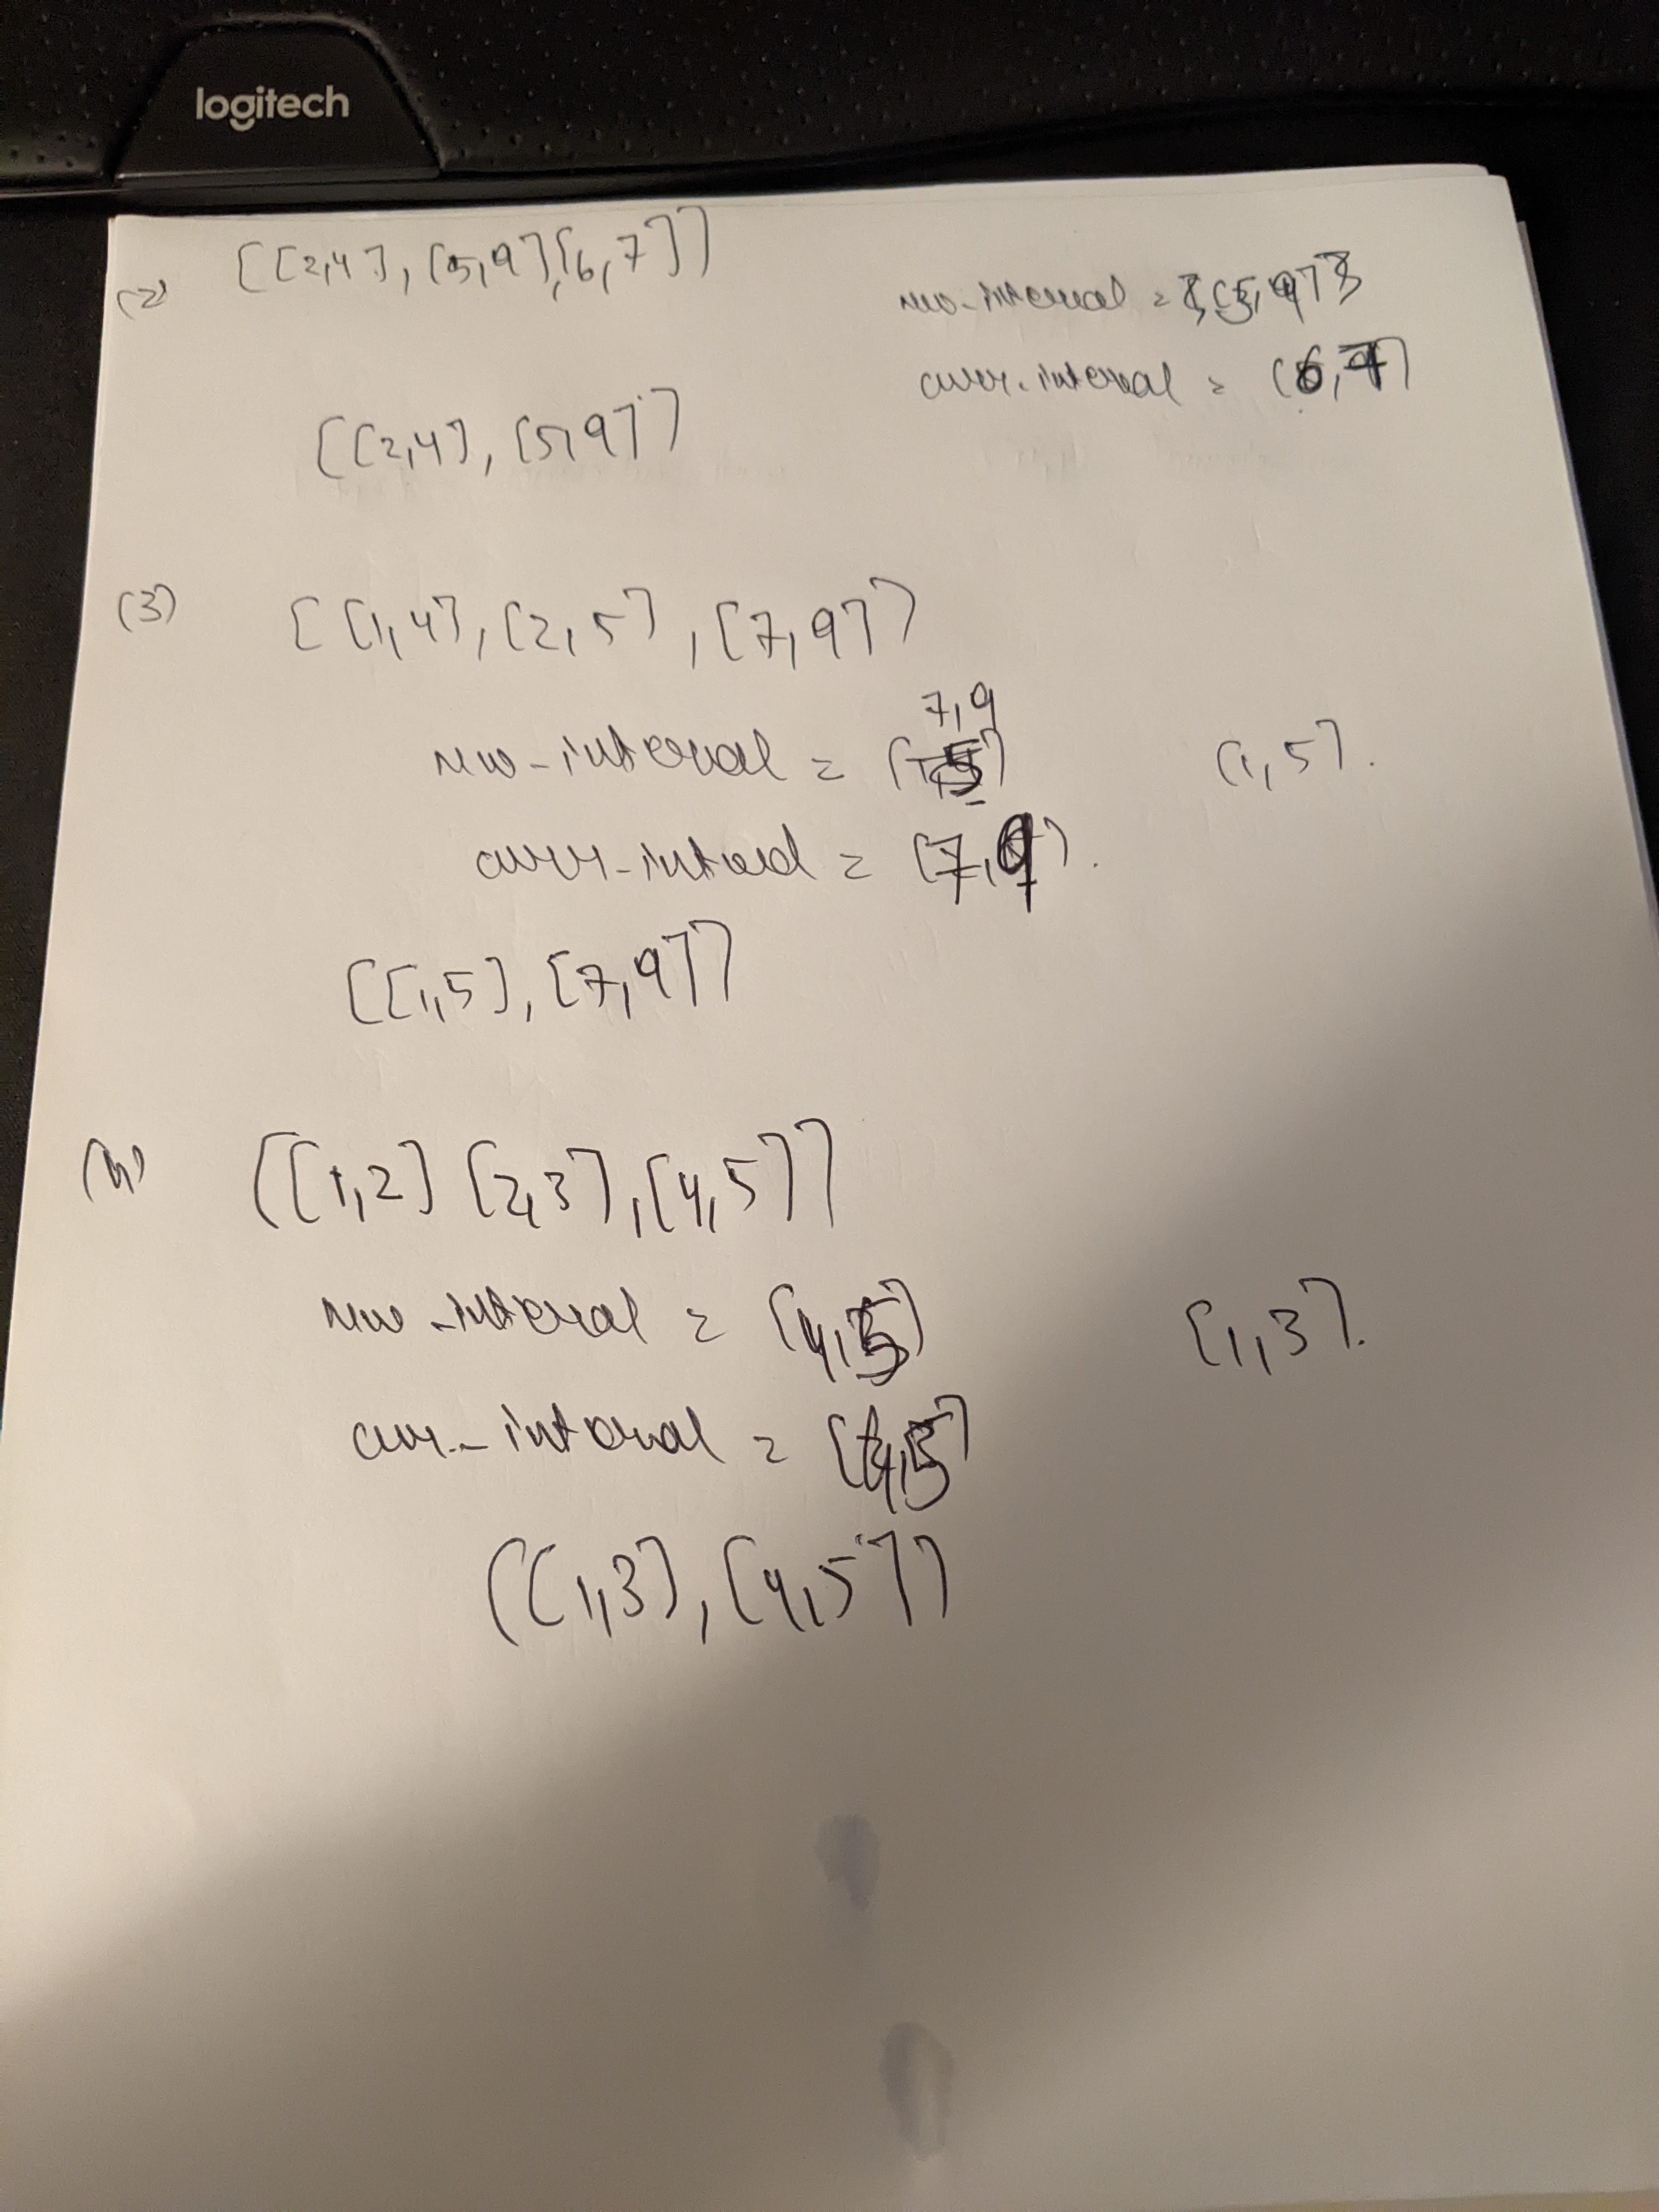 logitech
(2) [[2,4], [5,9], [6,7]]
new-interval = [5,9]
curr-interval = [6,7]
[[2,4], [5,9]]
(3) [[1,4], [2,5], [7,9]]
7,9
new-interval = [1,5] [1,5].
curr-interval = [7,9].
[[1,5], [7,9]]
(4) [[1,2] [2,3], [4,5]]
new-interval = [4,5] [1,3].
curr-interval = [4,5]
[[1,3], [4,5]]